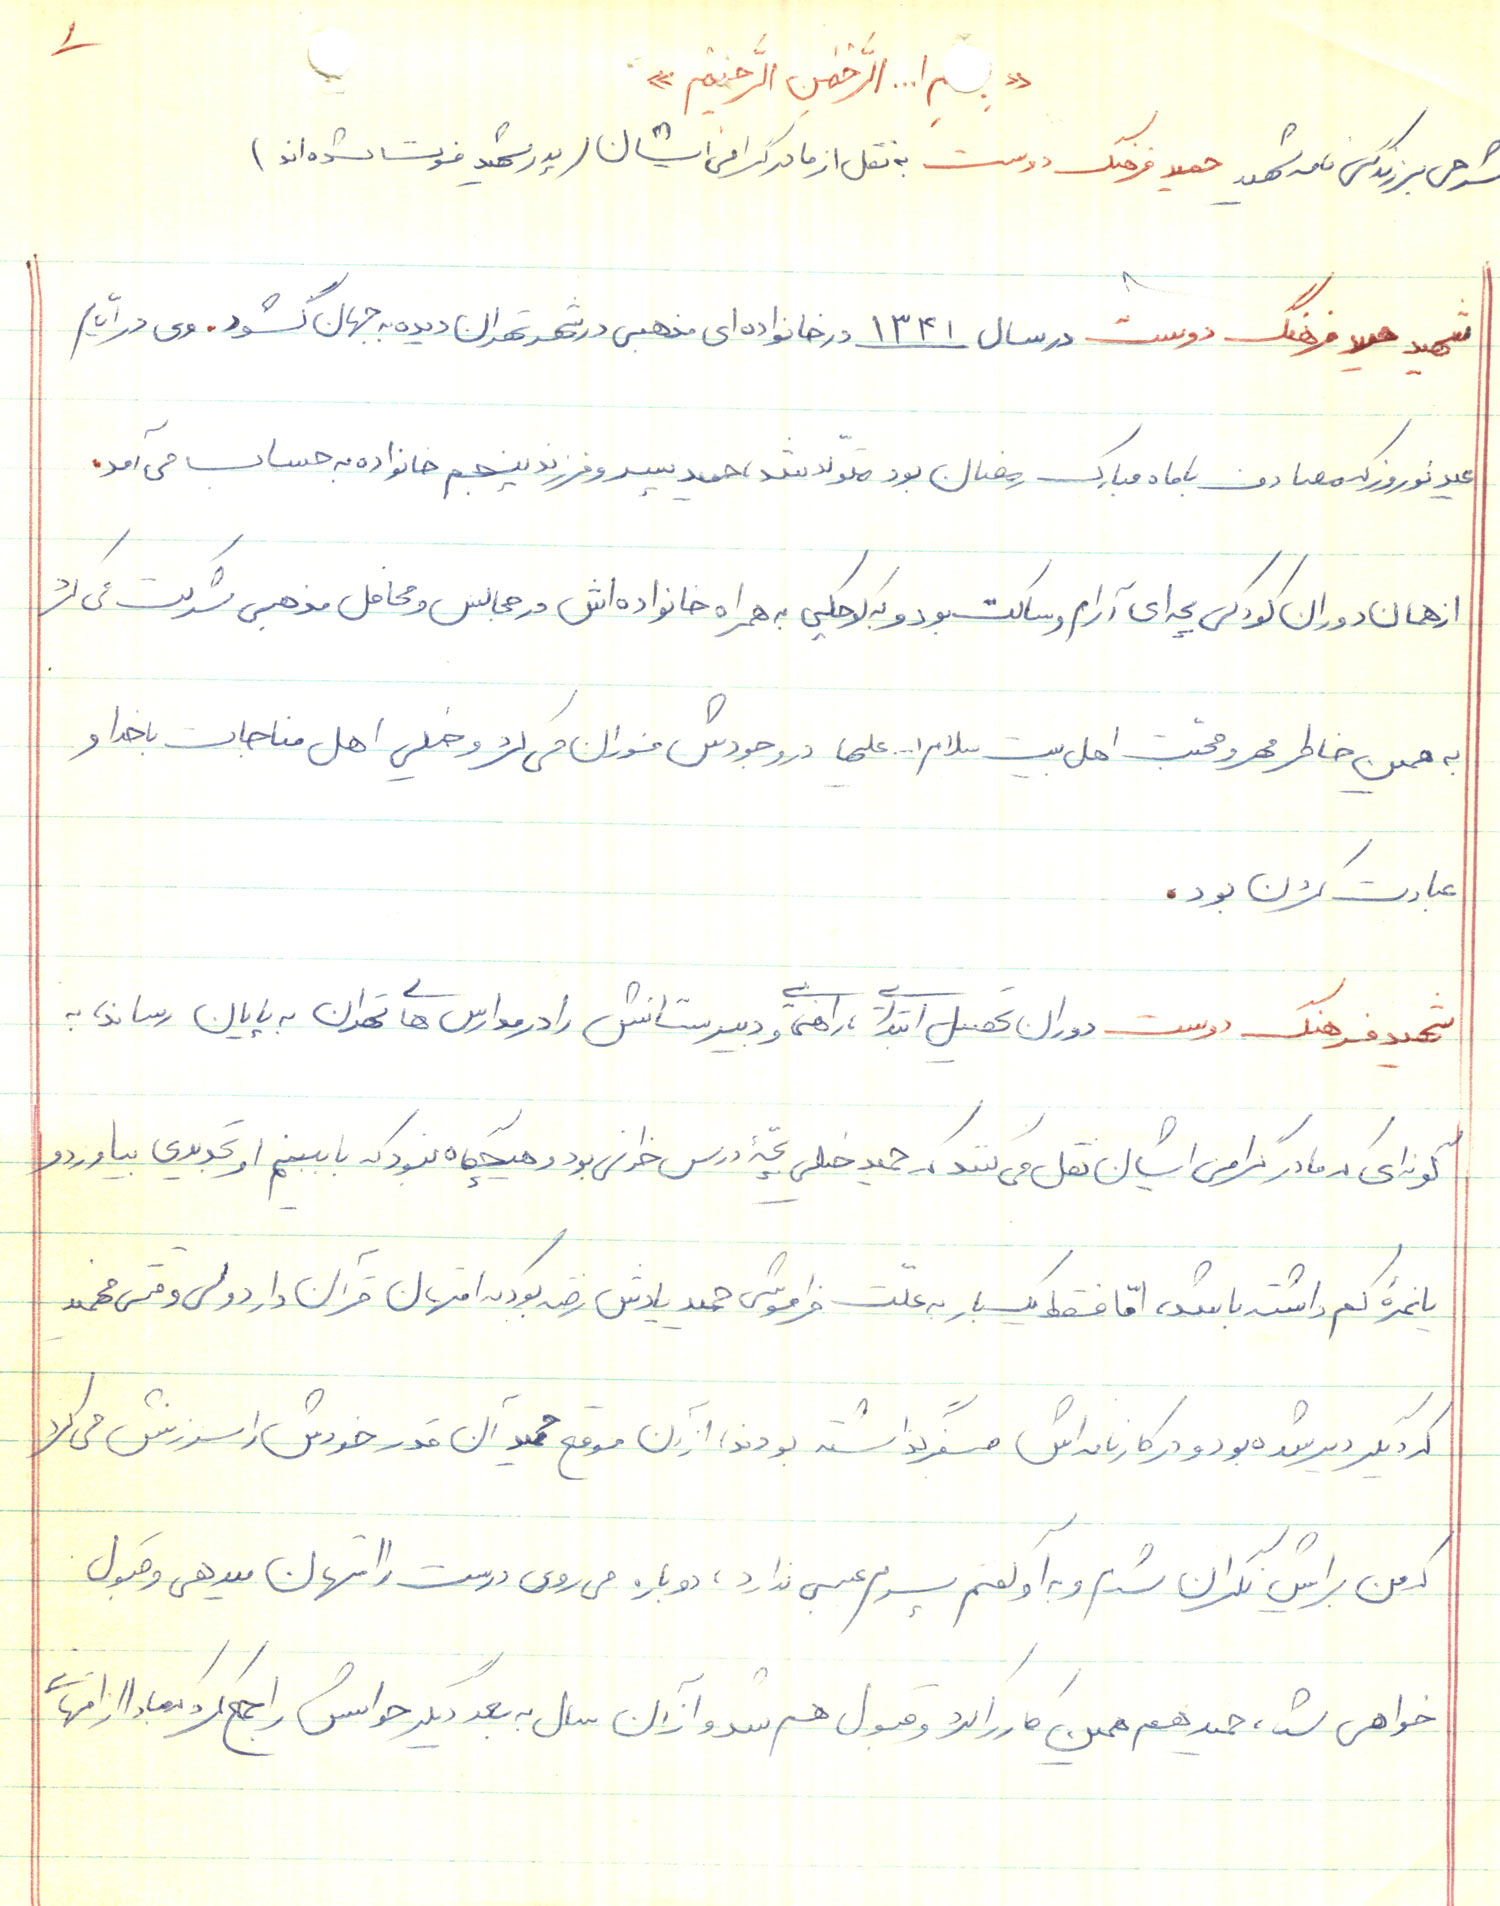 ۱
« بِسمِ ا... الرَّحمنِ الرَّحیم »
شرحی بر زندگی نامه شهید حمید فرهنگ دوست به نقل از مادر گرامی ایشان (پدر شهید فوت شده اند)
شهید حمید فرهنگ دوست در سال ۱۳۴۱ در خانواده ای مذهبی در شهر تهران دیده به جهان گشود. وی در ایّام
عید نوروز که مصادف با ماه مبارک رمضان بود متولّد شد، حمید پسر و فرزند پنجم خانواده به حساب می آمد.
از همان دوران کودکی بچه ای آرام و ساکت بود و به کوچکی به همراه خانواده اش در مجالس و محافل مذهبی شرکت می کرد
به همین خاطر مهر و محبّت اهل بیت سلام ا... علیها در وجودش فوران می کرد و خیلی اهل مناجات با خدا و
عبادت کردن بود.
شهید فرهنگ دوست دوران تحصیلی ابتدائی، راهنمائی و دبیرستانش را در مدارس های تهران به پایان رساند، به
گونه ای که مادر گرامی ایشان نقل می کنند که حمید خیلی بچّهٔ درس خوانی بود و هیچگاه نبود که ما ببینیم او تجدیدی بیاورد و
یا نمرهٔ کم داشته باشد، امّا فقط یک بار به علّت فراموشی حمید یادش رفته بود که امتهان قرآن دارد ولی وقتی فهمید
که دیگر دیر شده بود و در کارنامه اش صفر گذاشته بودند، از آن موقع حمید آن قدر خودش را سرزنش می کرد
که من براش نگران شدم و به او گفتم پسرم عیبی ندارد، دوباره می روی درست را امتهان میدهی و قبول
خواهی شد، حمید هم همین کار را کرد و قبول هم شد و از آن سال به بعد دیگر حواسش را جمع کرد که مبادا از امتهانی